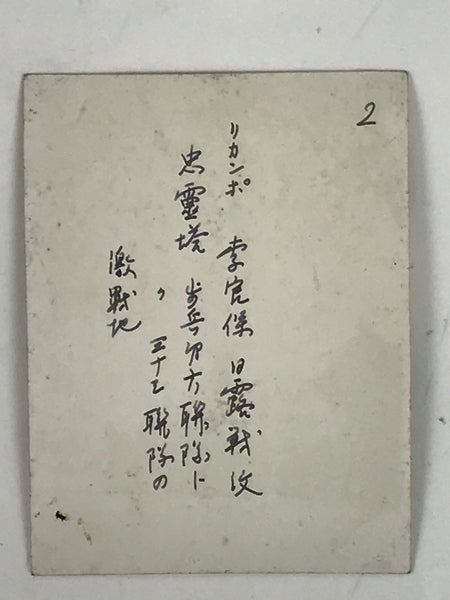 2
リカンポ 李官保 日露戦
忠靈塔 歩兵第六聯隊ト
〃 三十三聯隊の
激戰地